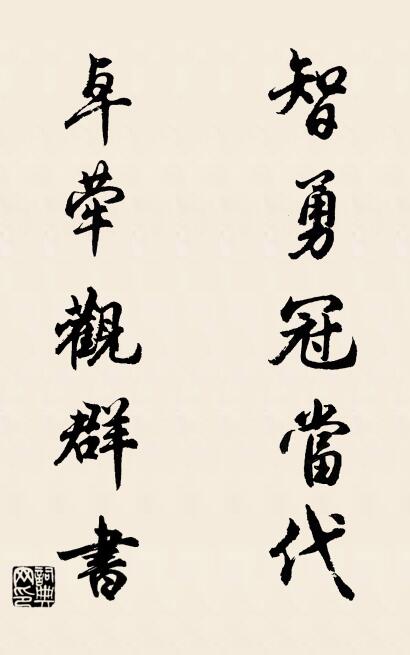 智勇冠當代
卓犖觀群書
詞典網印